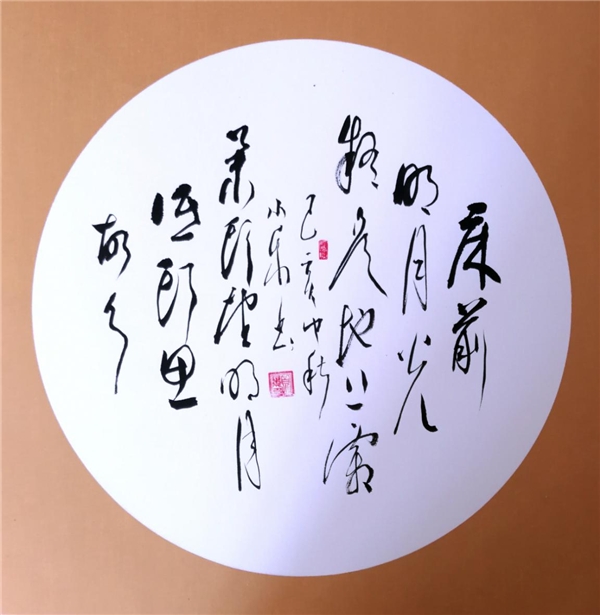 床前
明月光
疑是地上霜
己亥中秋
书
举头望明月
低头思
故乡